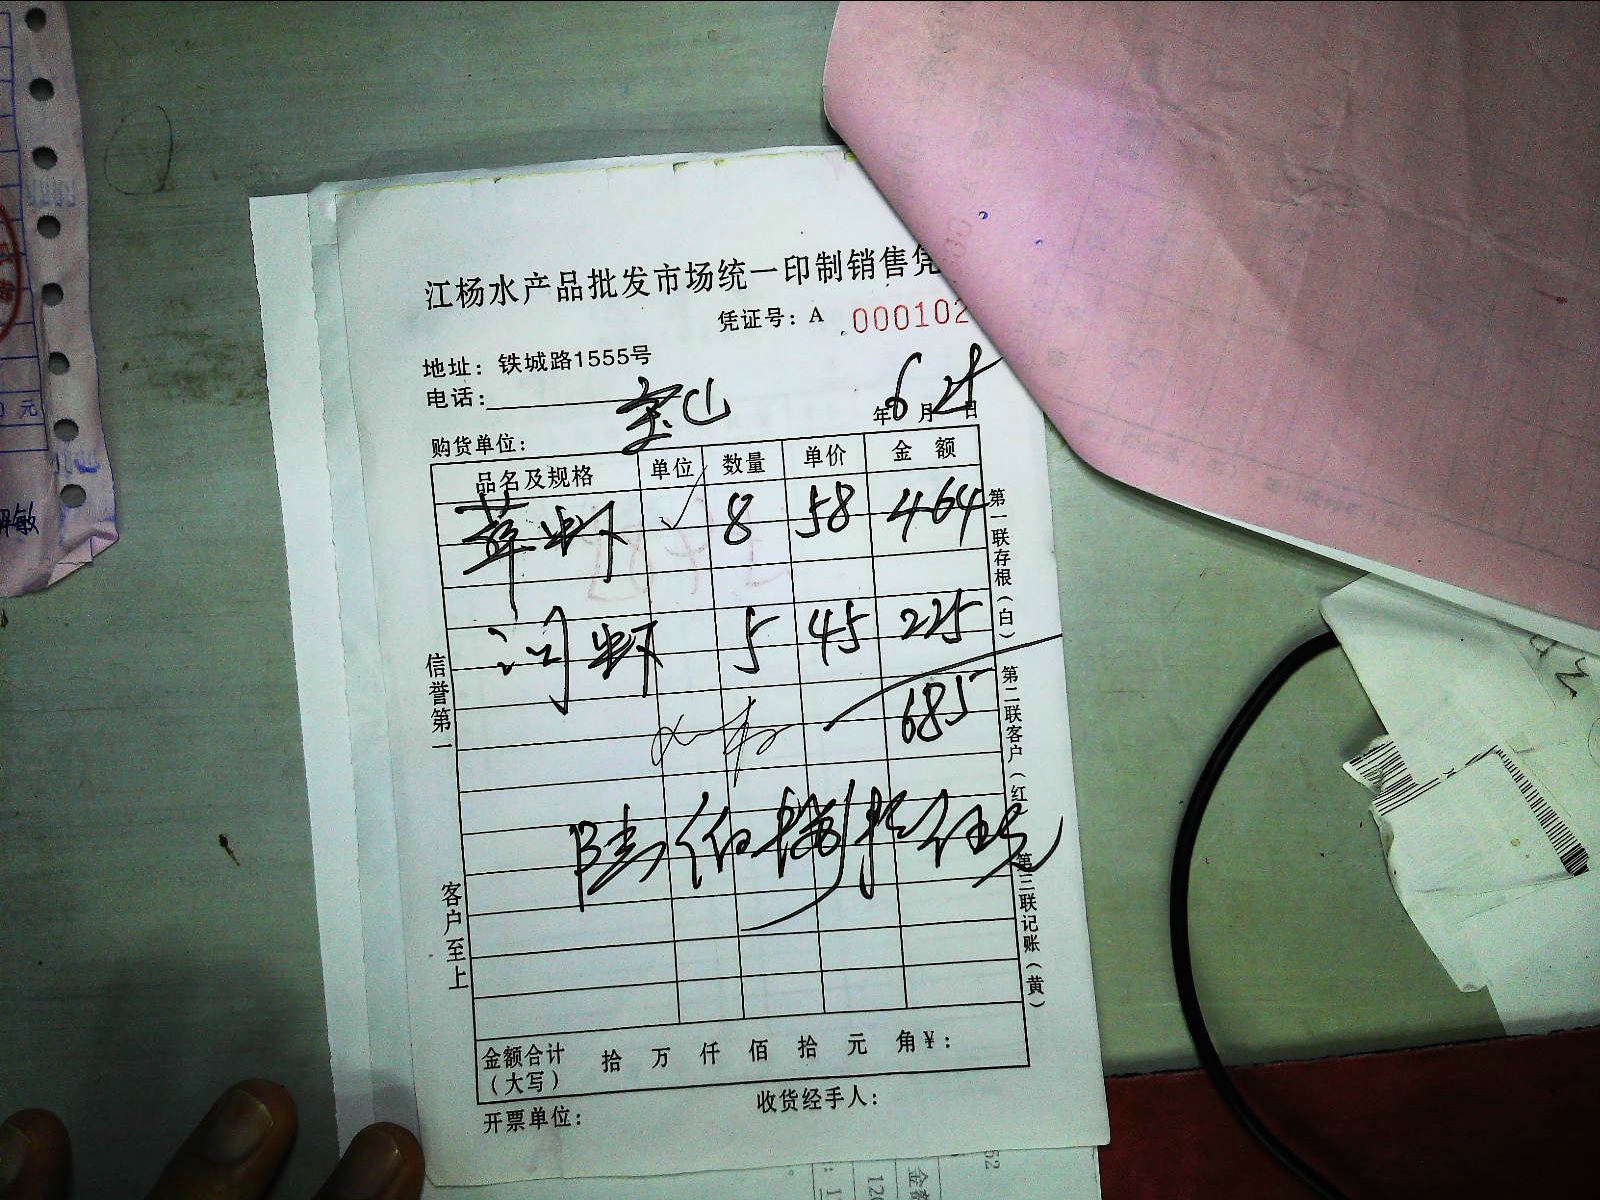 江杨水产品批发市场统一印制销售凭
凭证号：A 000102
地址：铁城路1555号
电话：
宝山
年6月25日
购货单位：
品名及规格 单位 数量 单价 金额
草虾 8 58 464
河虾 5 45 225
685
陆佰捌拾伍元
金额合计（大写） 拾 万 仟 佰 拾 元 角 ¥：
开票单位： 收货经手人：
信誉第一
客户至上
第一联存根（白） 第二联客户（红） 第三联记账（黄）
元
敏
金额